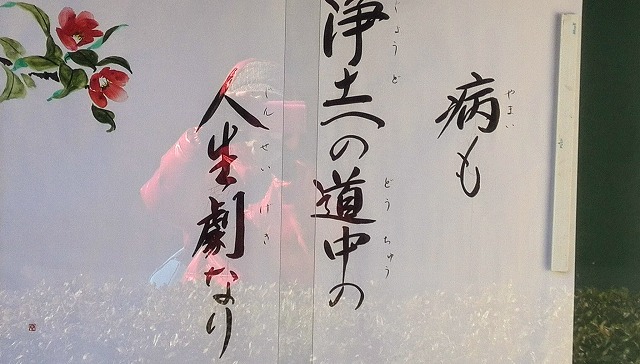 病も
やまい
浄土への道中の
じょうど
どうちゅう
人生劇なり
じんせいげき